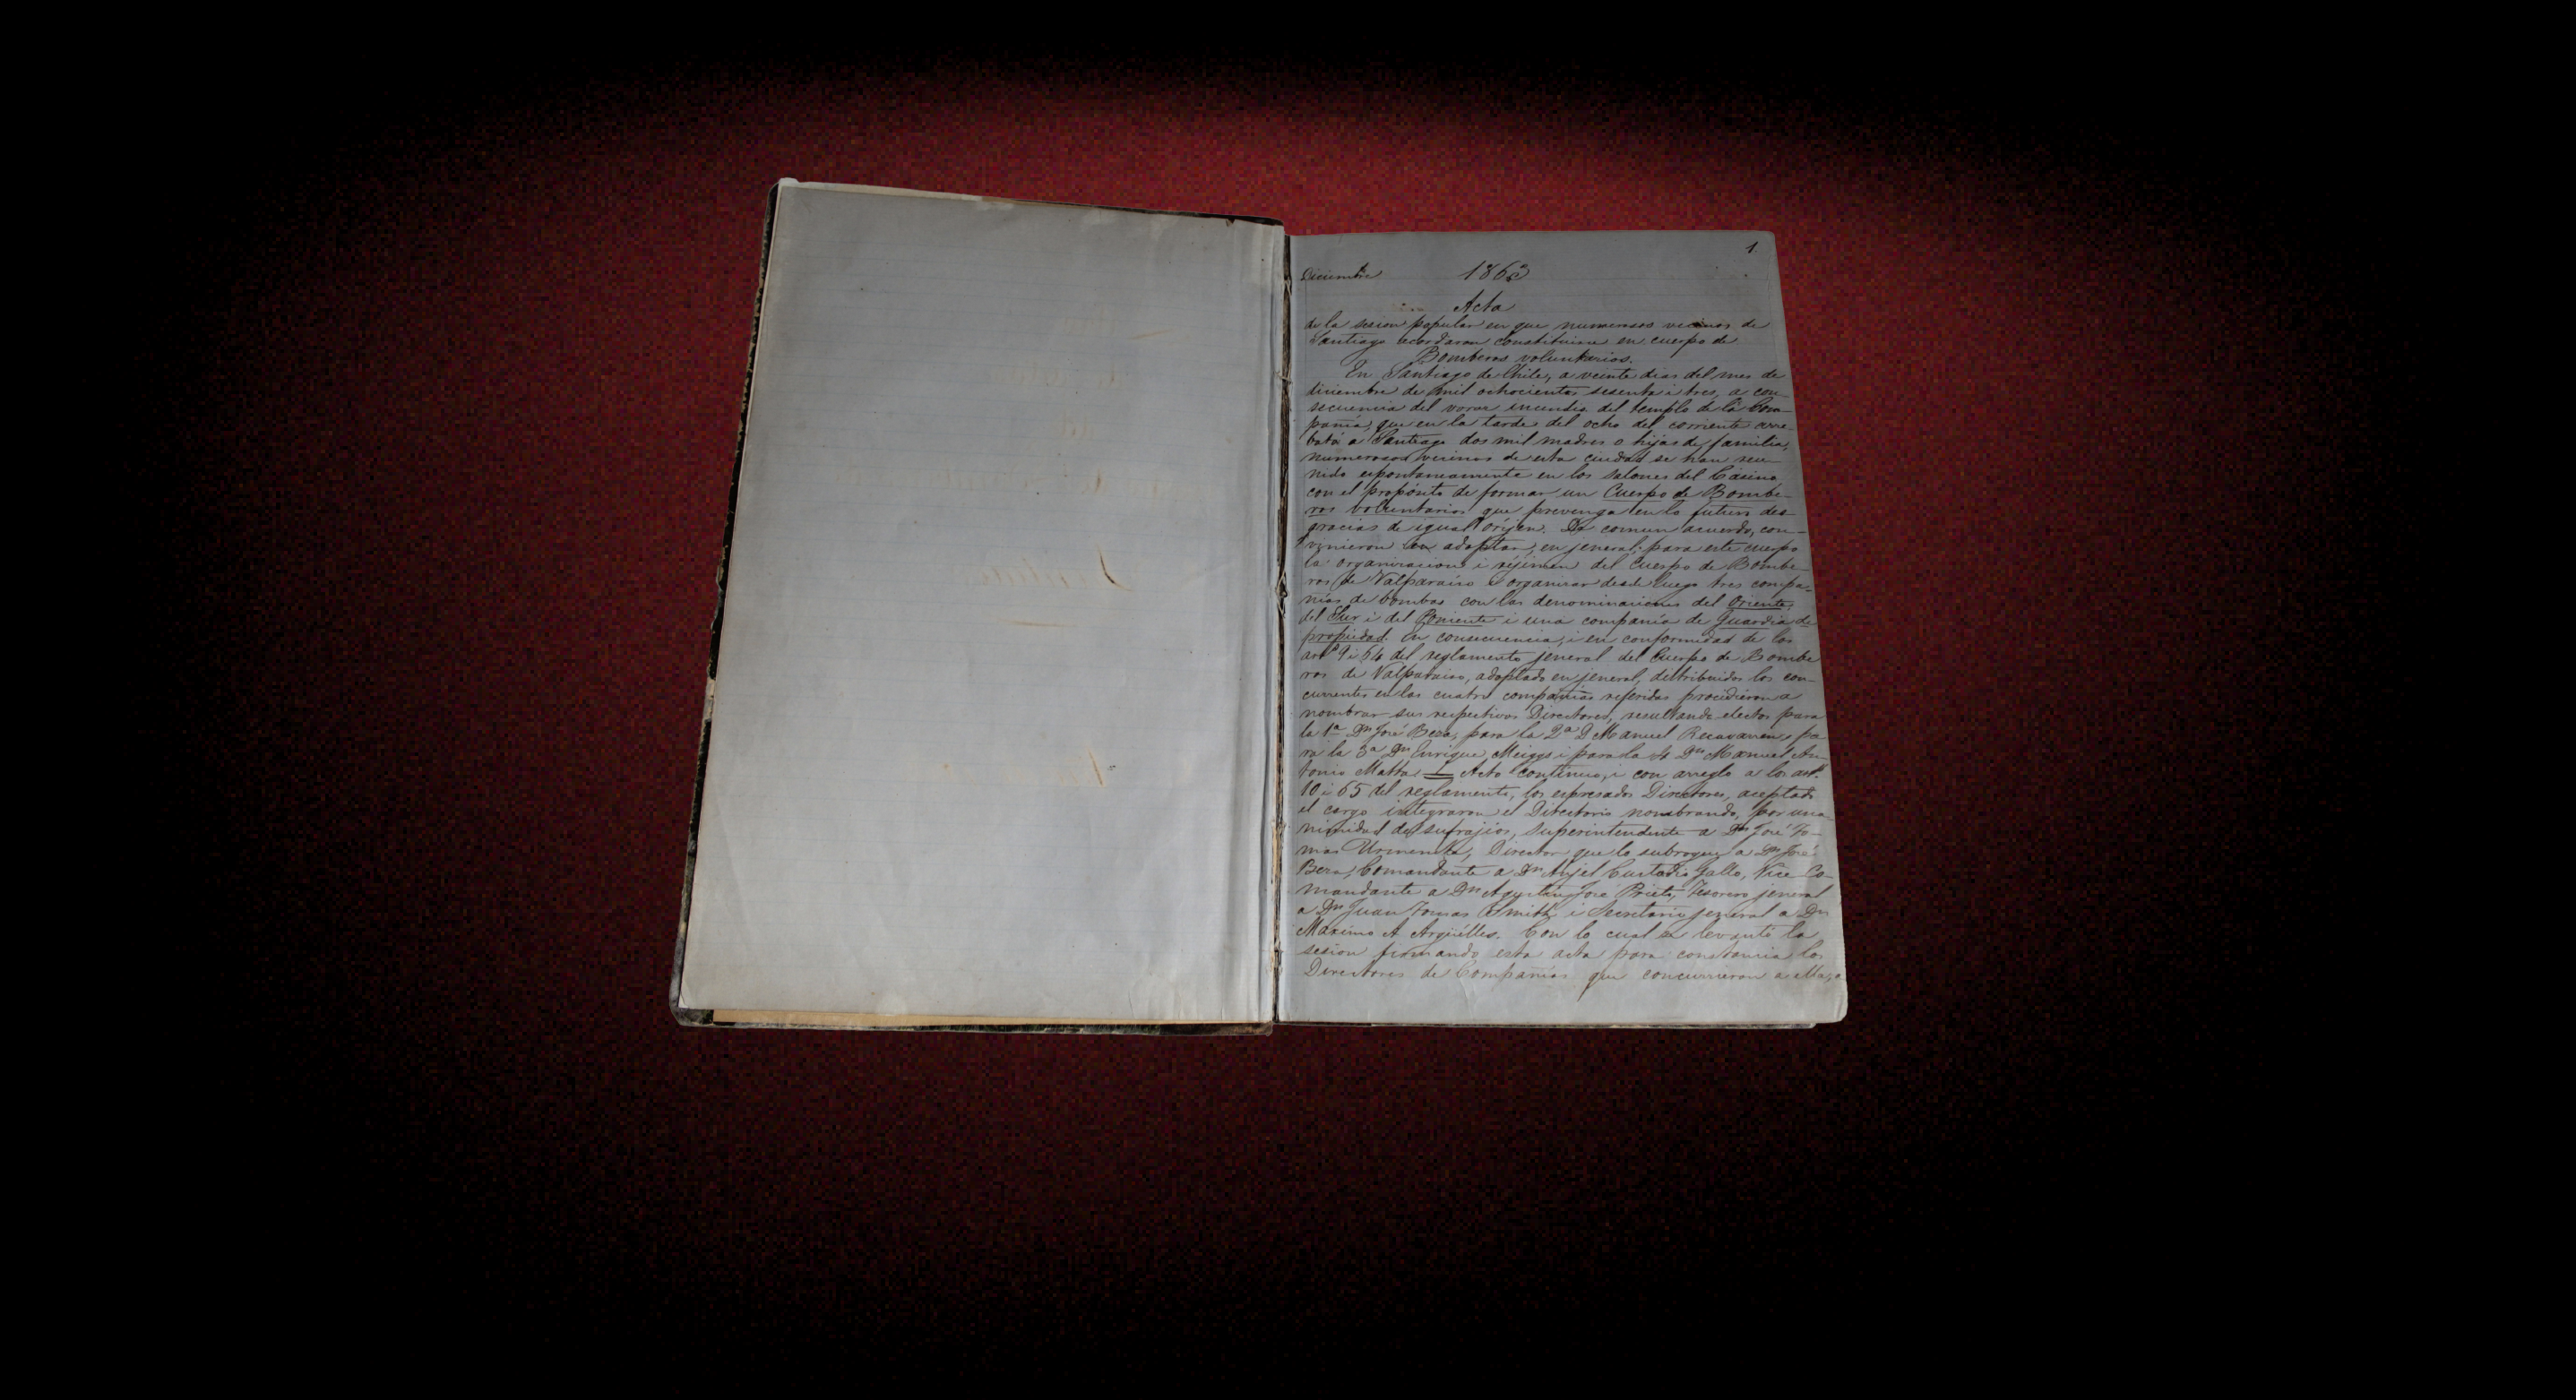 1.
Diciembre 1863
Acta
de la sesion popular en que numerosos vecinos de
Santiago acordaron constituirse en cuerpo de
Bomberos voluntarios.
En Santiago de Chile, a veinte dias del mes de
diciembre de mil ochocientos sesenta i tres, a con
secuencia del voraz incendio del templo de la Com-
pañia, que en la tarde del ocho del corriente arre-
bató a Santiago dos mil madres o hijas de familia,
numerosos vecinos de esta ciudad se han reu-
nido espontaneamente en los salones del Casino
con el propósito de formar un Cuerpo de Bombe-
ros voluntarios que prevenga en lo futuro des-
gracias de igual oríjen. De comun acuerdo, con-
vinieron en adoptar, en jeneral, para este cuerpo
la organizacion i réjimen del Cuerpo de Bombe-
ros de Valparaiso i organizar desde luego tres compa-
ñias de bombas con las denominaciones del Oriente,
del Sur i del Poniente i una compañia de Guardia de
propiedad. En consecuencia, i en conformidad de los
artˢ 9 i 64 del reglamento jeneral del Cuerpo de Bombe
ros de Valparaiso, adoptado en jeneral, distribuidos los con-
currentes en las cuatro compañias referidas procedieron a
nombrar sus respectivos Directores, resultando electos para
la 1ª Dn José Beza, para la 2ª D Manuel Recavarren, pa
ra la 3ª Dn Enrique Meiggs i para la 4 Dn Manuel An-
tonio Matta. Acto continuo, i con arreglo a los artˢ
10 i 65 del reglamento, los espresados Directores, aceptado
el cargo integraron el Directorio nombrando, por una
nimidad de sufrajios, Superintendente a Dn José To-
mas Urmeneta, Director que lo subrogue a Dn José
Beza, Comandante a Dn Anjel Custodio Gallo, Vice Co-
mandante a Dn Agustin José Prieto, Tesorero jeneral
a Dn Juan Tomas Smith i Secretario jeneral a Dn
Maximo A Argüelles. Con lo cual se levantó la
sesion firmando esta acta para constancia los
Directores de Compañias que concurrieron a ella,